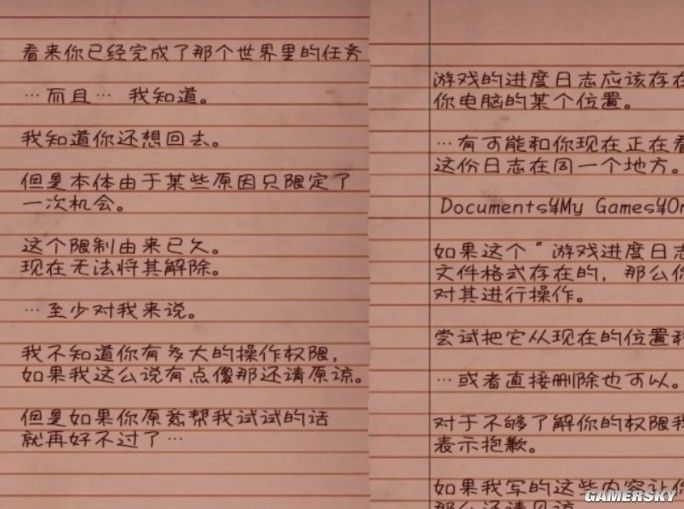 看来你已经完成了那个世界里的任务
…而且… 我知道。
我知道你还想回去。
但是本体由于某些原因只限定了
一次机会。
这个限制由来已久。
现在无法将其解除。
…至少对我来说。
我不知道你有多大的操作权限，
如果我这么说有点傻那还请原谅。
但是如果你原意帮我试试的话
就再好不过了…
游戏的进度日志应该存在
你电脑的某个位置。
…有可能和你现在正在看
这份日志在同一个地方。
Documents¥My Games¥On
如果这个“游戏进度日志
文件格式存在的，那么你
对其进行操作。
尝试把它从现在的位置移
…或者直接删除也可以。
对于不够了解你的权限我
表示抱歉。
如果我写的这些内容让你
GAMERSKY